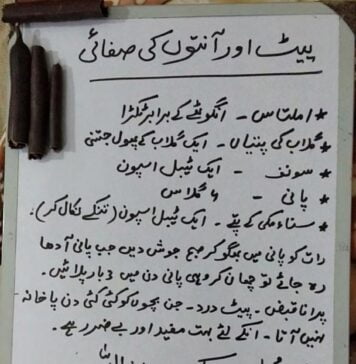 پیٹ اور آنتوں کی صفائی
* املتاس - انگوٹھے کے برابر ٹکڑا
* گلاب کی پتیاں - ایک گلاب کے پھول جتنی
* سونف - ایک ٹیبل اسپون
* پانی - گلاس
* سناء مکی کے پتے - ایک ٹیبل اسپون (تنکے نکال کر).
رات کو پانی میں بھگو کر صبح جوش دیں جب پانی آدھا
رہ جائے تو چھان کر وہی پانی دن میں 3 بار پلائیں.
پرانا قبض - پیٹ درد - جن بچوں کو کئی کئی دن پاخانہ
نہیں آتا - انکے لئے بہت مفید اور بے ضرر ہے.